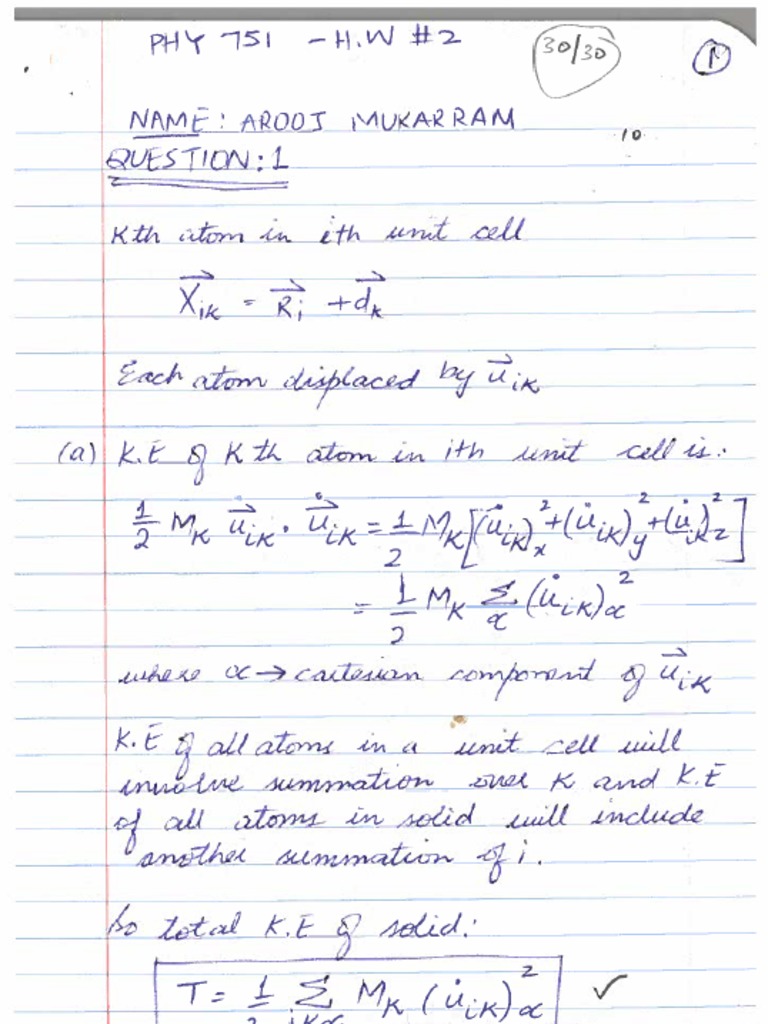 PHY 751 - H.W #2
30/30
1
NAME: AROOJ MUKARRAM
10
QUESTION: 1
Kth atom in ith unit cell
X⃗ᵢₖ = R⃗ᵢ + d⃗ₖ
Each atom displaced by u⃗ᵢₖ
(a) K.E of Kth atom in ith unit cell is:
1/2 Mₖ u⃗ᵢₖ · u̇⃗ᵢₖ = 1/2 Mₖ [(u̇ᵢₖ)ₓ² + (u̇ᵢₖ)_y² + (u̇ᵢₖ)_z²]
= 1/2 Mₖ Σ_α (u̇ᵢₖ)_α²
where α → cartesian component of u⃗ᵢₖ
K.E of all atoms in a unit cell will
involve summation over K and K.E
of all atoms in solid will include
another summation of i.
So total K.E of solid:
T = 1/2 Σ_ikα Mₖ (u̇ᵢₖ)_α² ✓